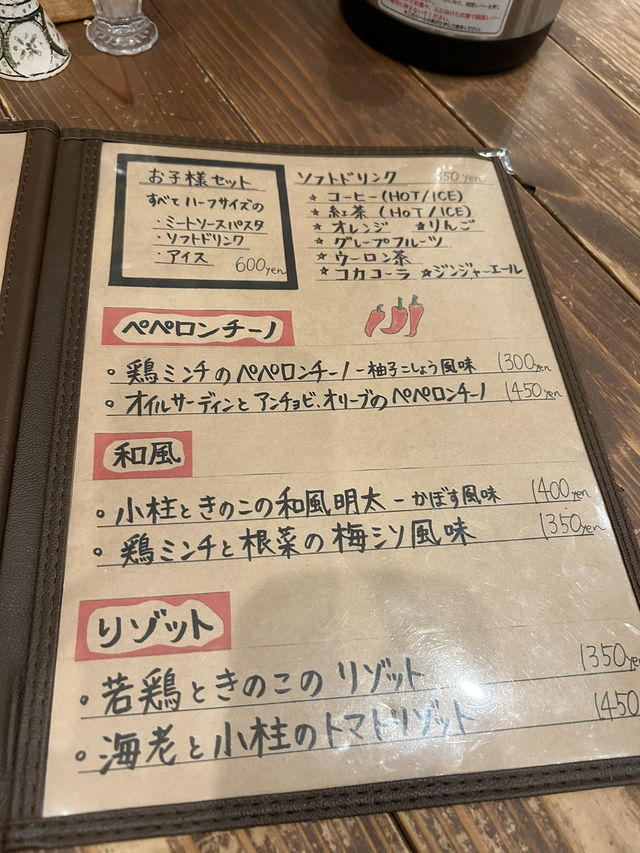 お子様セット
すべてハーフサイズの
・ミートソースパスタ
・ソフトドリンク
・アイス
600yen
ソフトドリンク 350yen
☆コーヒー(HOT/ICE)
☆紅茶(HOT/ICE)
☆オレンジ ☆りんご
☆グレープフルーツ
☆ウーロン茶
☆コカコーラ ☆ジンジャーエール
ペペロンチーノ
。鶏ミンチのペペロンチーノー柚子こしょう風味 1300yen
。オイルサーディンとアンチョビ、オリーブのペペロンチーノ 1450yen
和風
。小柱ときのこの和風明太ーかぼす風味 1400yen
。鶏ミンチと根菜の梅シソ風味 1350yen
リゾット
。若鶏ときのこのリゾット 1350yen
。海老と小柱のトマトリゾット 1450